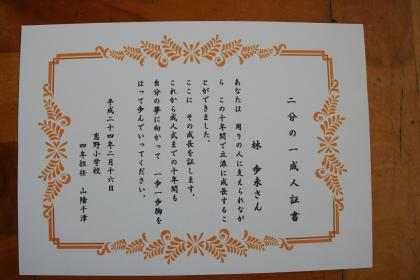 二分の一成人証書
林 歩未さん
あなたは 周りの人に支えられなが
ら この十年間で立派に成長するこ
とができました。
ここに その成長を証します。
これから成人式までの十年間も
自分の夢に向かって 一歩一歩胸を
はって歩んでいってください。
平成二十四年二月十六日
恵野小学校
四年担任 山陰千津